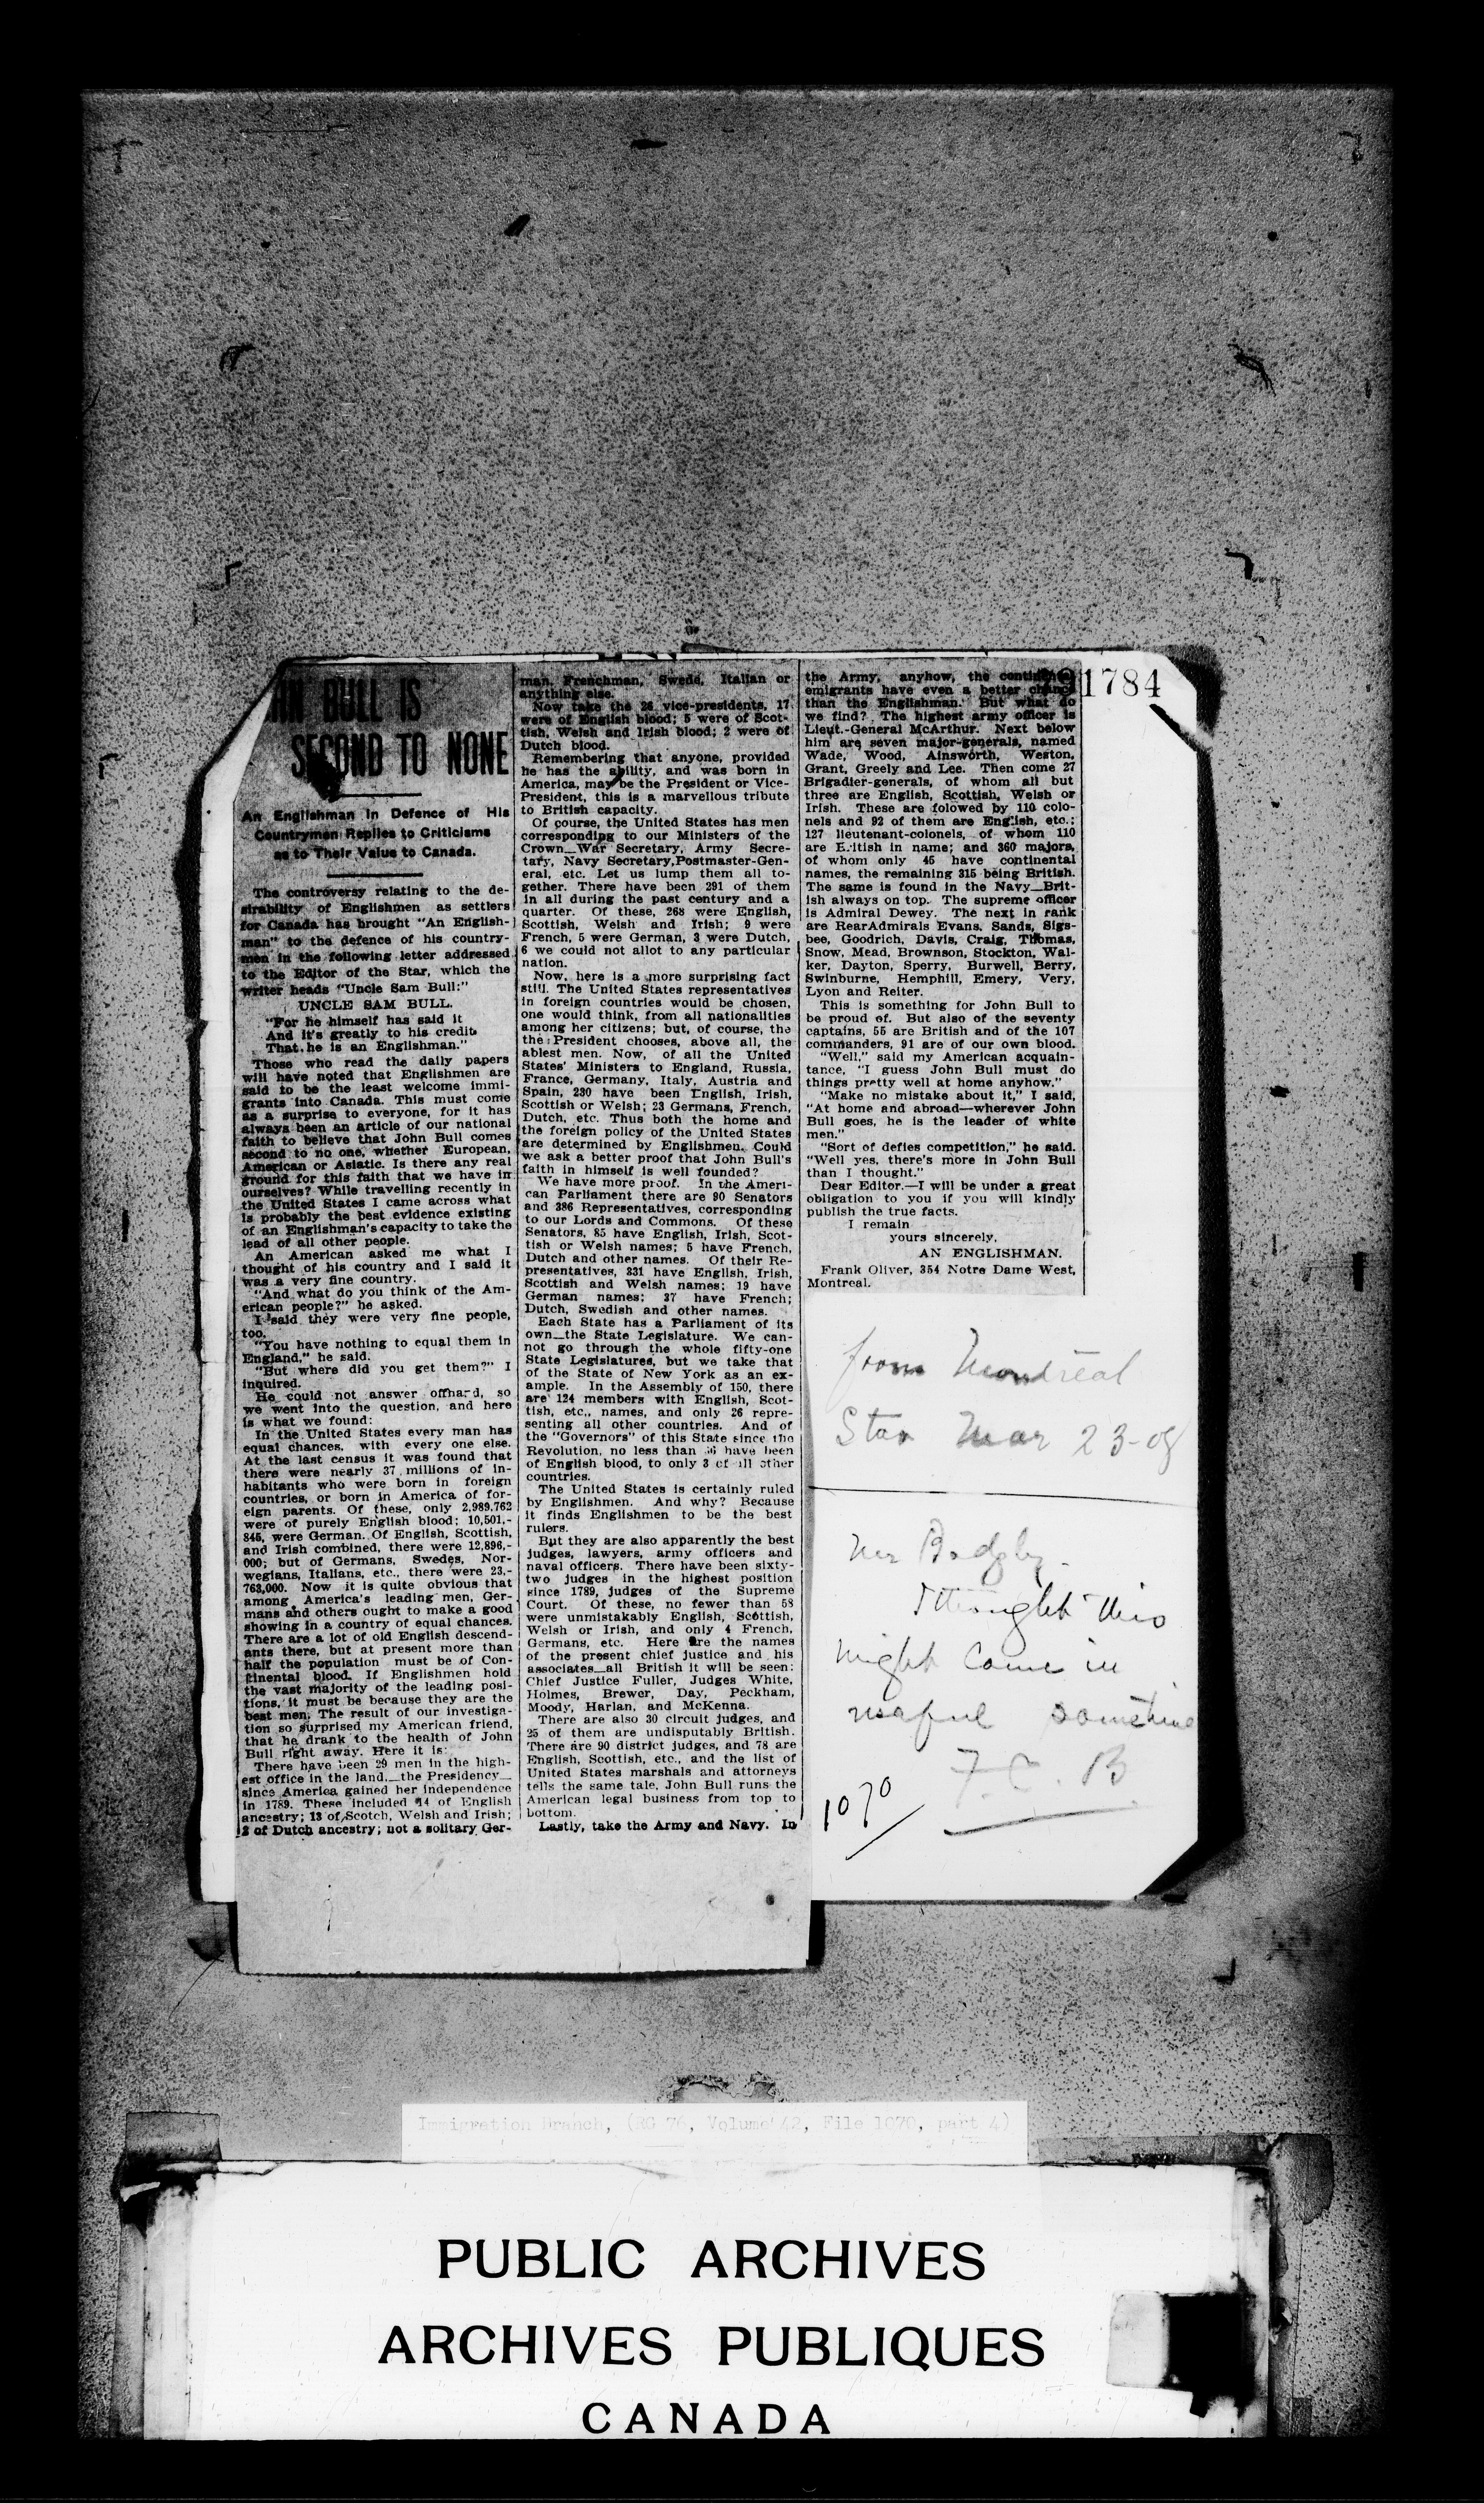 BULL IS
SECOND TO NONE
An Englishman in Defence of His
Countrymen Replies to Criticisms
as to Their Value to Canada.
The controversy relating to the de-
sirability of Englishmen as settlers
for Canada has brought "An English-
man" to the defence of his country-
men in the following letter addressed
to the Editor of the Star, which the
writer heads "Uncle Sam Bull:"
UNCLE SAM BULL.
"For he himself has said it
And it's greatly to his credit
That he is an Englishman."
Those who read the daily papers
will have noted that Englishmen are
said to be the least welcome immi-
grants into Canada. This must come
as a surprise to everyone, for it has
always been an article of our national
faith to believe that John Bull comes
second to no one, whether European,
American or Asiatic. Is there any real
ground for this faith that we have in
ourselves? While travelling recently in
the United States I came across what
is probably the best evidence existing
of an Englishman's capacity to take the
lead of all other people.
An American asked me what I
thought of his country and I said it
was a very fine country.
"And what do you think of the Am-
erican people?" he asked.
I said they were very fine people,
too.
"You have nothing to equal them in
England," he said.
"But where did you get them?" I
inquired.
He could not answer offhard, so
we went into the question, and here
is what we found:
In the United States every man has
equal chances, with every one else.
At the last census it was found that
there were nearly 37 millions of in-
habitants who were born in foreign
countries, or born in America of for-
eign parents. Of these, only 2,989,762
were of purely English blood; 10,501,-
845, were German. Of English, Scottish,
and Irish combined, there were 12,896,-
000; but of Germans, Swedes, Nor-
wegians, Italians, etc., there were 23,-
763,000. Now it is quite obvious that
among America's leading men, Ger-
mans and others ought to make a good
showing in a country of equal chances.
There are a lot of old English descend-
ants there, but at present more than
half the population must be of Con-
tinental blood. If Englishmen hold
the vast majority of the leading posi-
tions, it must be because they are the
best men. The result of our investiga-
tion so surprised my American friend,
that he drank to the health of John
Bull right away. Here it is:
There have been 29 men in the high-
est office in the land,—the Presidency—
since America gained her independence
in 1789. These included 14 of English
ancestry; 13 of Scotch, Welsh and Irish;
2 of Dutch ancestry; not a solitary Ger-
man, Frenchman, Swede, Italian or
anything else.
Now take the 26 vice-presidents, 17
were of English blood; 5 were of Scot-
tish, Welsh and Irish blood; 2 were of
Dutch blood.
Remembering that anyone, provided
he has the ability, and was born in
America, may be the President or Vice-
President, this is a marvellous tribute
to British capacity.
Of course, the United States has men
corresponding to our Ministers of the
Crown—War Secretary, Army Secre-
tary, Navy Secretary, Postmaster-Gen-
eral, etc. Let us lump them all to-
gether. There have been 291 of them
in all during the past century and a
quarter. Of these, 268 were English,
Scottish, Welsh and Irish; 9 were
French, 5 were German, 3 were Dutch,
6 we could not allot to any particular
nation.
Now, here is a more surprising fact
still. The United States representatives
in foreign countries would be chosen,
one would think, from all nationalities
among her citizens; but, of course, the
the President chooses, above all, the
ablest men. Now, of all the United
States' Ministers to England, Russia,
France, Germany, Italy, Austria and
Spain, 230 have been English, Irish,
Scottish or Welsh; 23 Germans, French,
Dutch, etc. Thus both the home and
the foreign policy of the United States
are determined by Englishmen. Could
we ask a better proof that John Bull's
faith in himself is well founded?
We have more proof. In the Ameri-
can Parliament there are 90 Senators
and 386 Representatives, corresponding
to our Lords and Commons. Of these
Senators, 85 have English, Irish, Scot-
tish or Welsh names; 5 have French,
Dutch and other names. Of their Re-
presentatives, 331 have English, Irish,
Scottish and Welsh names; 19 have
German names; 37 have French;
Dutch, Swedish and other names.
Each State has a Parliament of its
own—the State Legislature. We can-
not go through the whole fifty-one
State Legislatures, but we take that
of the State of New York as an ex-
ample. In the Assembly of 150, there
are 124 members with English, Scot-
tish, etc., names, and only 26 repre-
senting all other countries. And of
the "Governors" of this State since the
Revolution, no less than 36 have been
of English blood, to only 3 of all other
countries.
The United States is certainly ruled
by Englishmen. And why? Because
it finds Englishmen to be the best
rulers.
But they are also apparently the best
judges, lawyers, army officers and
naval officers. There have been sixty-
two judges in the highest position
since 1789, judges of the Supreme
Court. Of these, no fewer than 58
were unmistakably English, Scottish,
Welsh or Irish, and only 4 French,
Germans, etc. Here are the names
of the present chief justice and his
associates—all British it will be seen:
Chief Justice Fuller, Judges White,
Holmes, Brewer, Day, Peckham,
Moody, Harlan, and McKenna.
There are also 30 circuit judges, and
25 of them are undisputably British.
There are 90 district judges, and 78 are
English, Scottish, etc., and the list of
United States marshals and attorneys
tells the same tale. John Bull runs the
American legal business from top to
bottom.
Lastly, take the Army and Navy. In
the Army, anyhow, the continental
emigrants have even a better chance
than the Englishman. But what do
we find? The highest army officer is
Lieut.-General McArthur. Next below
him are seven major-generals, named
Wade, Wood, Ainsworth, Weston,
Grant, Greely and Lee. Then come 27
Brigadier-generals, of whom all but
three are English, Scottish, Welsh or
Irish. These are folowed by 110 colo-
nels and 92 of them are English, etc.;
127 lieutenant-colonels, of whom 110
are British in name; and 360 majors,
of whom only 45 have continental
names, the remaining 315 being British.
The same is found in the Navy—Brit-
ish always on top. The supreme officer
is Admiral Dewey. The next in rank
are RearAdmirals Evans, Sands, Sigs-
bee, Goodrich, Davis, Craig, Thomas,
Snow, Mead, Brownson, Stockton, Wal-
ker, Dayton, Sperry, Burwell, Berry,
Swinburne, Hemphill, Emery, Very,
Lyon and Reiter.
This is something for John Bull to
be proud of. But also of the seventy
captains, 55 are British and of the 107
commanders, 91 are of our own blood.
"Well," said my American acquain-
tance, "I guess John Bull must do
things pretty well at home anyhow."
"Make no mistake about it," I said,
"At home and abroad—wherever John
Bull goes, he is the leader of white
men."
"Sort of defies competition," he said.
"Well yes, there's more in John Bull
than I thought."
Dear Editor.—I will be under a great
obligation to you if you will kindly
publish the true facts.
I remain
yours sincerely,
AN ENGLISHMAN.
Frank Oliver, 354 Notre Dame West,
Montreal.
1784
from Montreal
Star Mar 23-08
Mr Badgley
I thought this
might come in
useful sometime
F. C. B
1070
Immigration Branch, (RG 76, Volume 42, File 1070, part 4)
PUBLIC ARCHIVES
ARCHIVES PUBLIQUES
CANADA